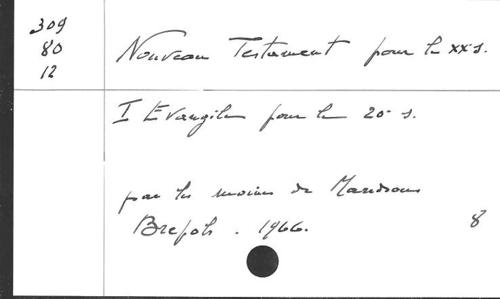 309
80
12
Nouveau Testament pour le XXs.
I Evangiles pour le 20 s.
par les moines de Maredsous
Brepols . 1966.
8